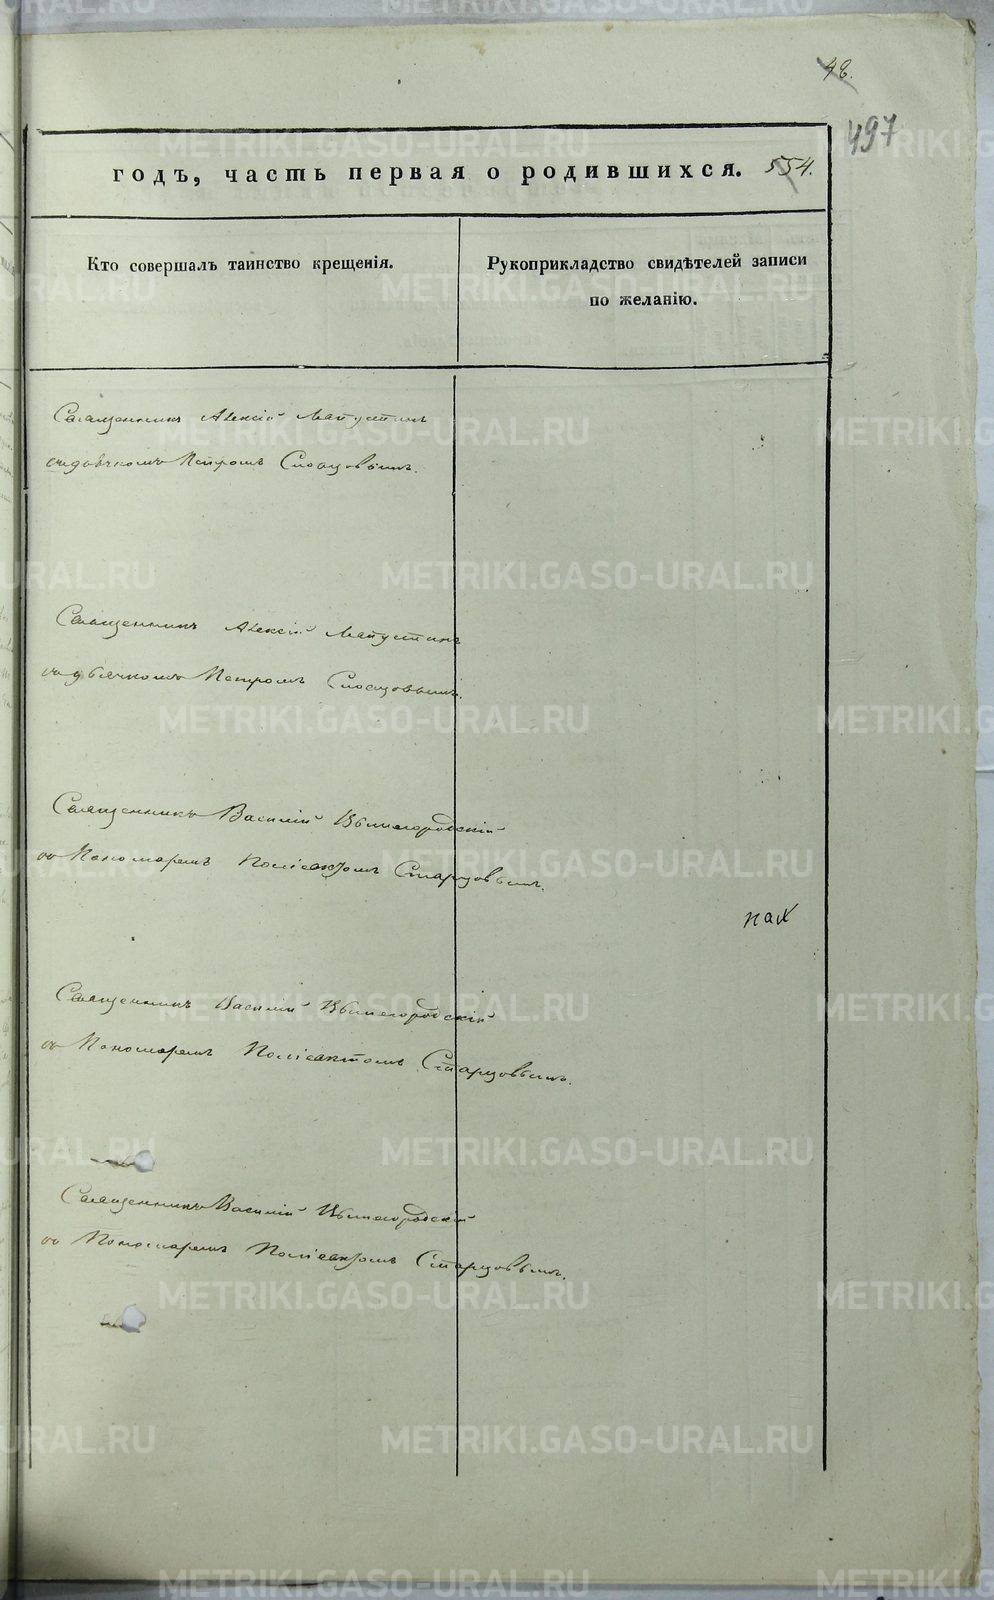 48.
497
годъ, часть первая о родившихся. 554.
Кто совершалъ таинство крещенія.
Рукоприкладство свидѣтелей записи
по желанію.
Священникъ Алексій
съ дьячкомъ Петромъ Словцовымъ.
Священникъ Алексій
съ дьячкомъ Петромъ Словцовымъ.
Священникъ Василій Вышегородскій
со Пономаремъ Поліевктомъ Старцовымъ.
Священникъ Василій Вышегородскій
со Пономаремъ Поліевктомъ Старцовымъ.
Священникъ Василій Вышегородскій
со Пономаремъ Поліевктомъ Старцовымъ.
METRIKI.GASO-URAL.RU